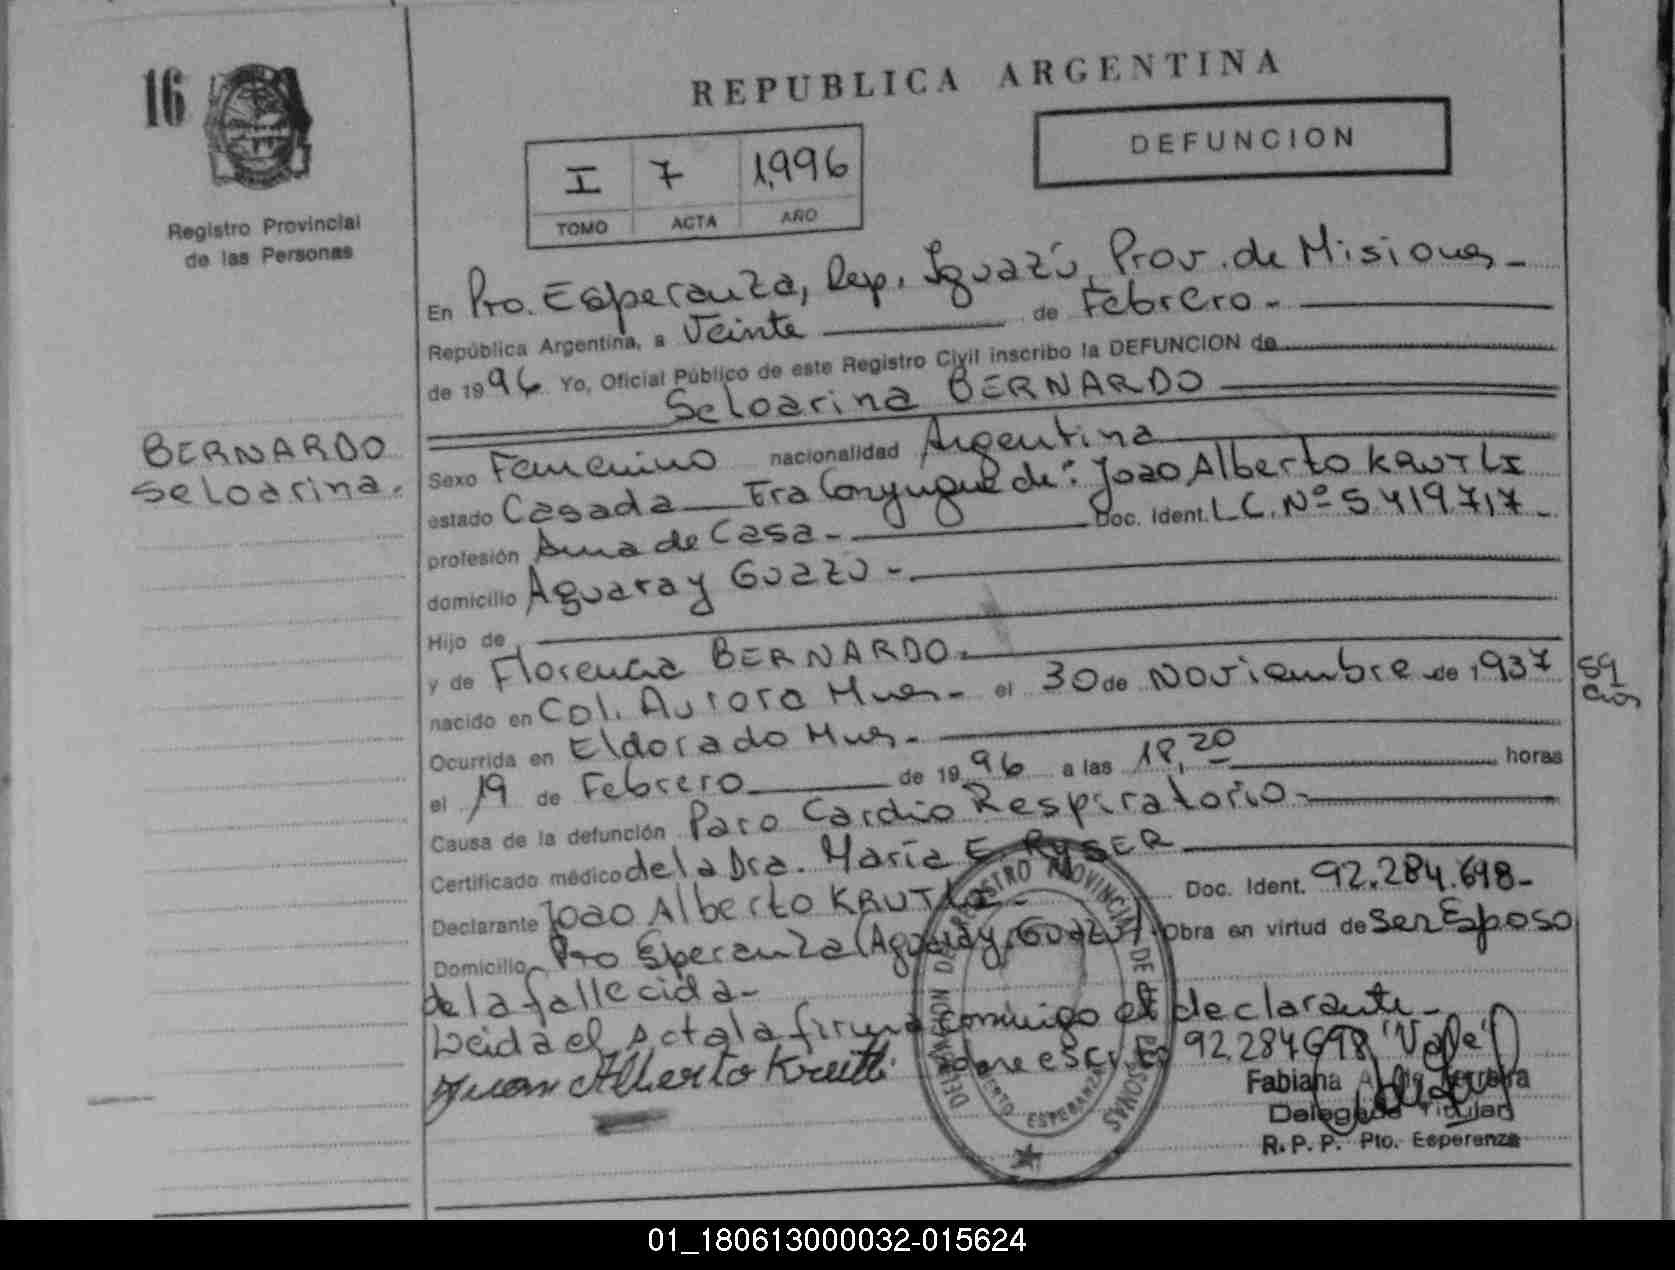 16
REPUBLICA ARGENTINA
DEFUNCION
I 7 1,996
TOMO ACTA AÑO
Registro Provincial
de las Personas
En Pto. Esperanza, Dep. Iguazú, Prov. de Misiones -
República Argentina, a Veinte de Febrero -
de 1996 Yo, Oficial Público de este Registro Civil inscribo la DEFUNCION de
Seloarina BERNARDO
BERNARDO
Seloarina.
Sexo Femenino nacionalidad Argentina
estado Casada Era Conyugue de: Joao Alberto
profesión Ama de Casa - Doc. Ident. L.C. Nº 5.419.717 -
domicilio Aguaray Guazu -
Hijo de
y de Florencia BERNARDO -
nacido en Col. Aurora Mnes - el 30 de Noviembre de 1937 59 años
Ocurrida en Eldorado Mnes -
el 19 de Febrero de 1996 a las 18,20 horas
Causa de la defunción Paro Cardio Respiratorio -
Certificado médico de la Dra. María E. RYSER
Declarante Joao Alberto Doc. Ident. 92.284.698 -
Domicilio Pto Esperanza (Aguaray Guazu) Obra en virtud de ser Esposo
de la fallecida -
Leida el Acta la firma conmigo el declarante -
Juan Alberto 92.284698 "Vale"
Fabiana
Delegada Titular
R. P. P. Pto. Esperanza
DELEGACION DEL REGISTRO PROVINCIAL DE LAS PERSONAS
PUERTO ESPERANZA
01_180613000032-015624